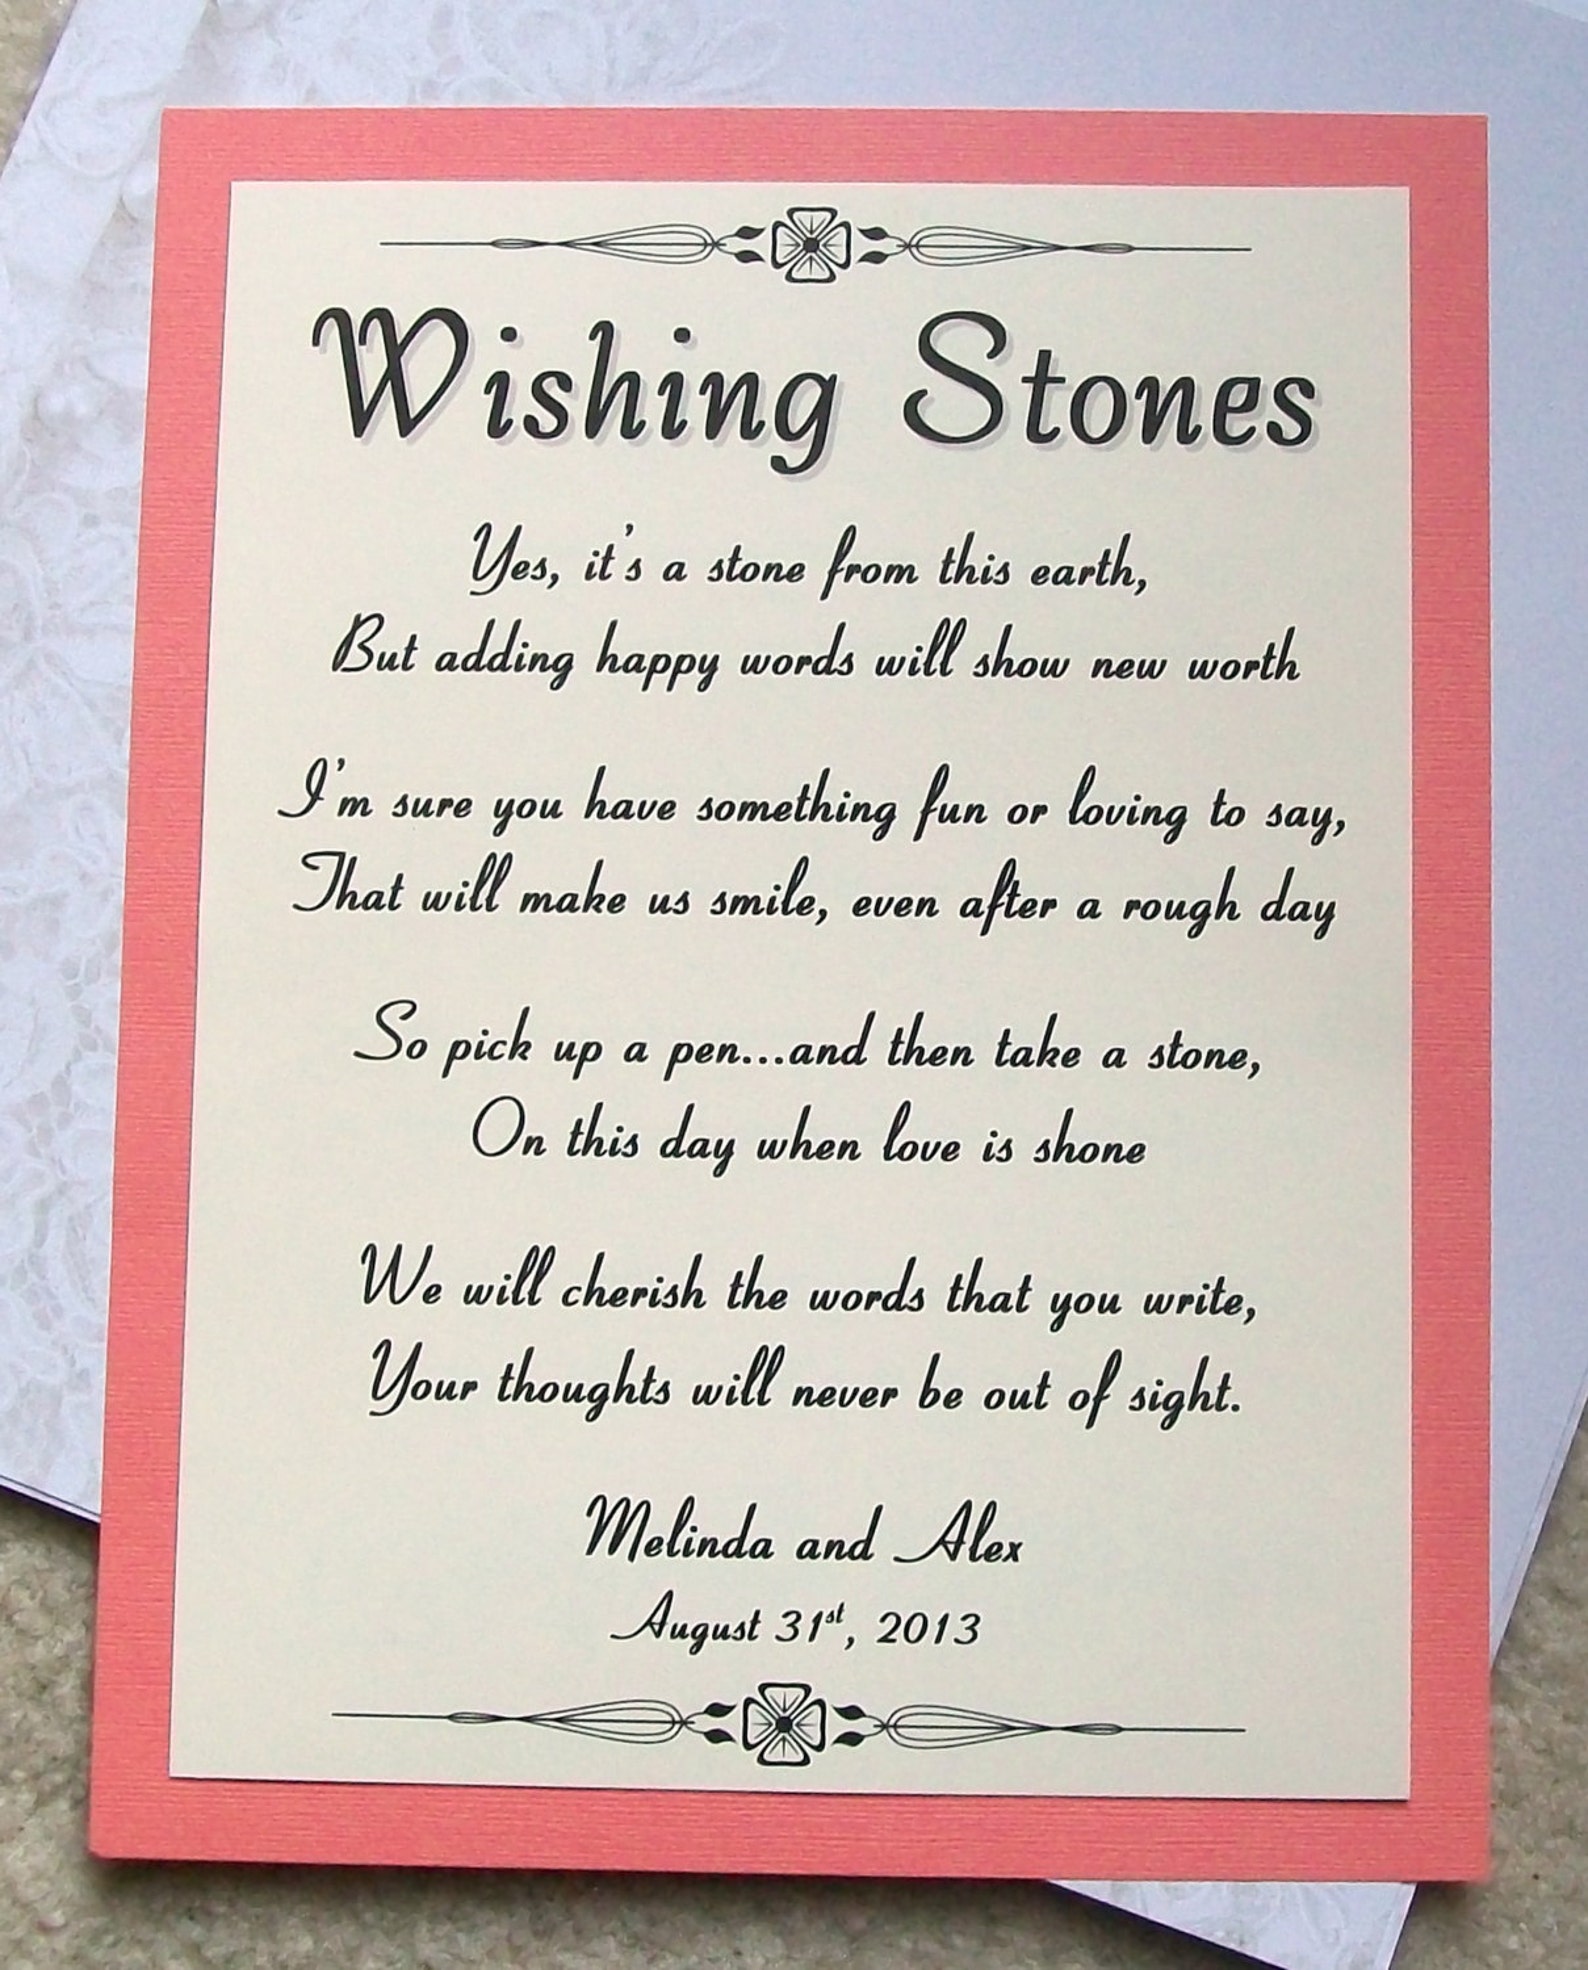 Wishing Stones
Yes, it's a stone from this earth,
But adding happy words will show new worth
I'm sure you have something fun or loving to say,
That will make us smile, even after a rough day
So pick up a pen...and then take a stone,
On this day when love is shone
We will cherish the words that you write,
Your thoughts will never be out of sight.
Melinda and Alex
August 31st, 2013